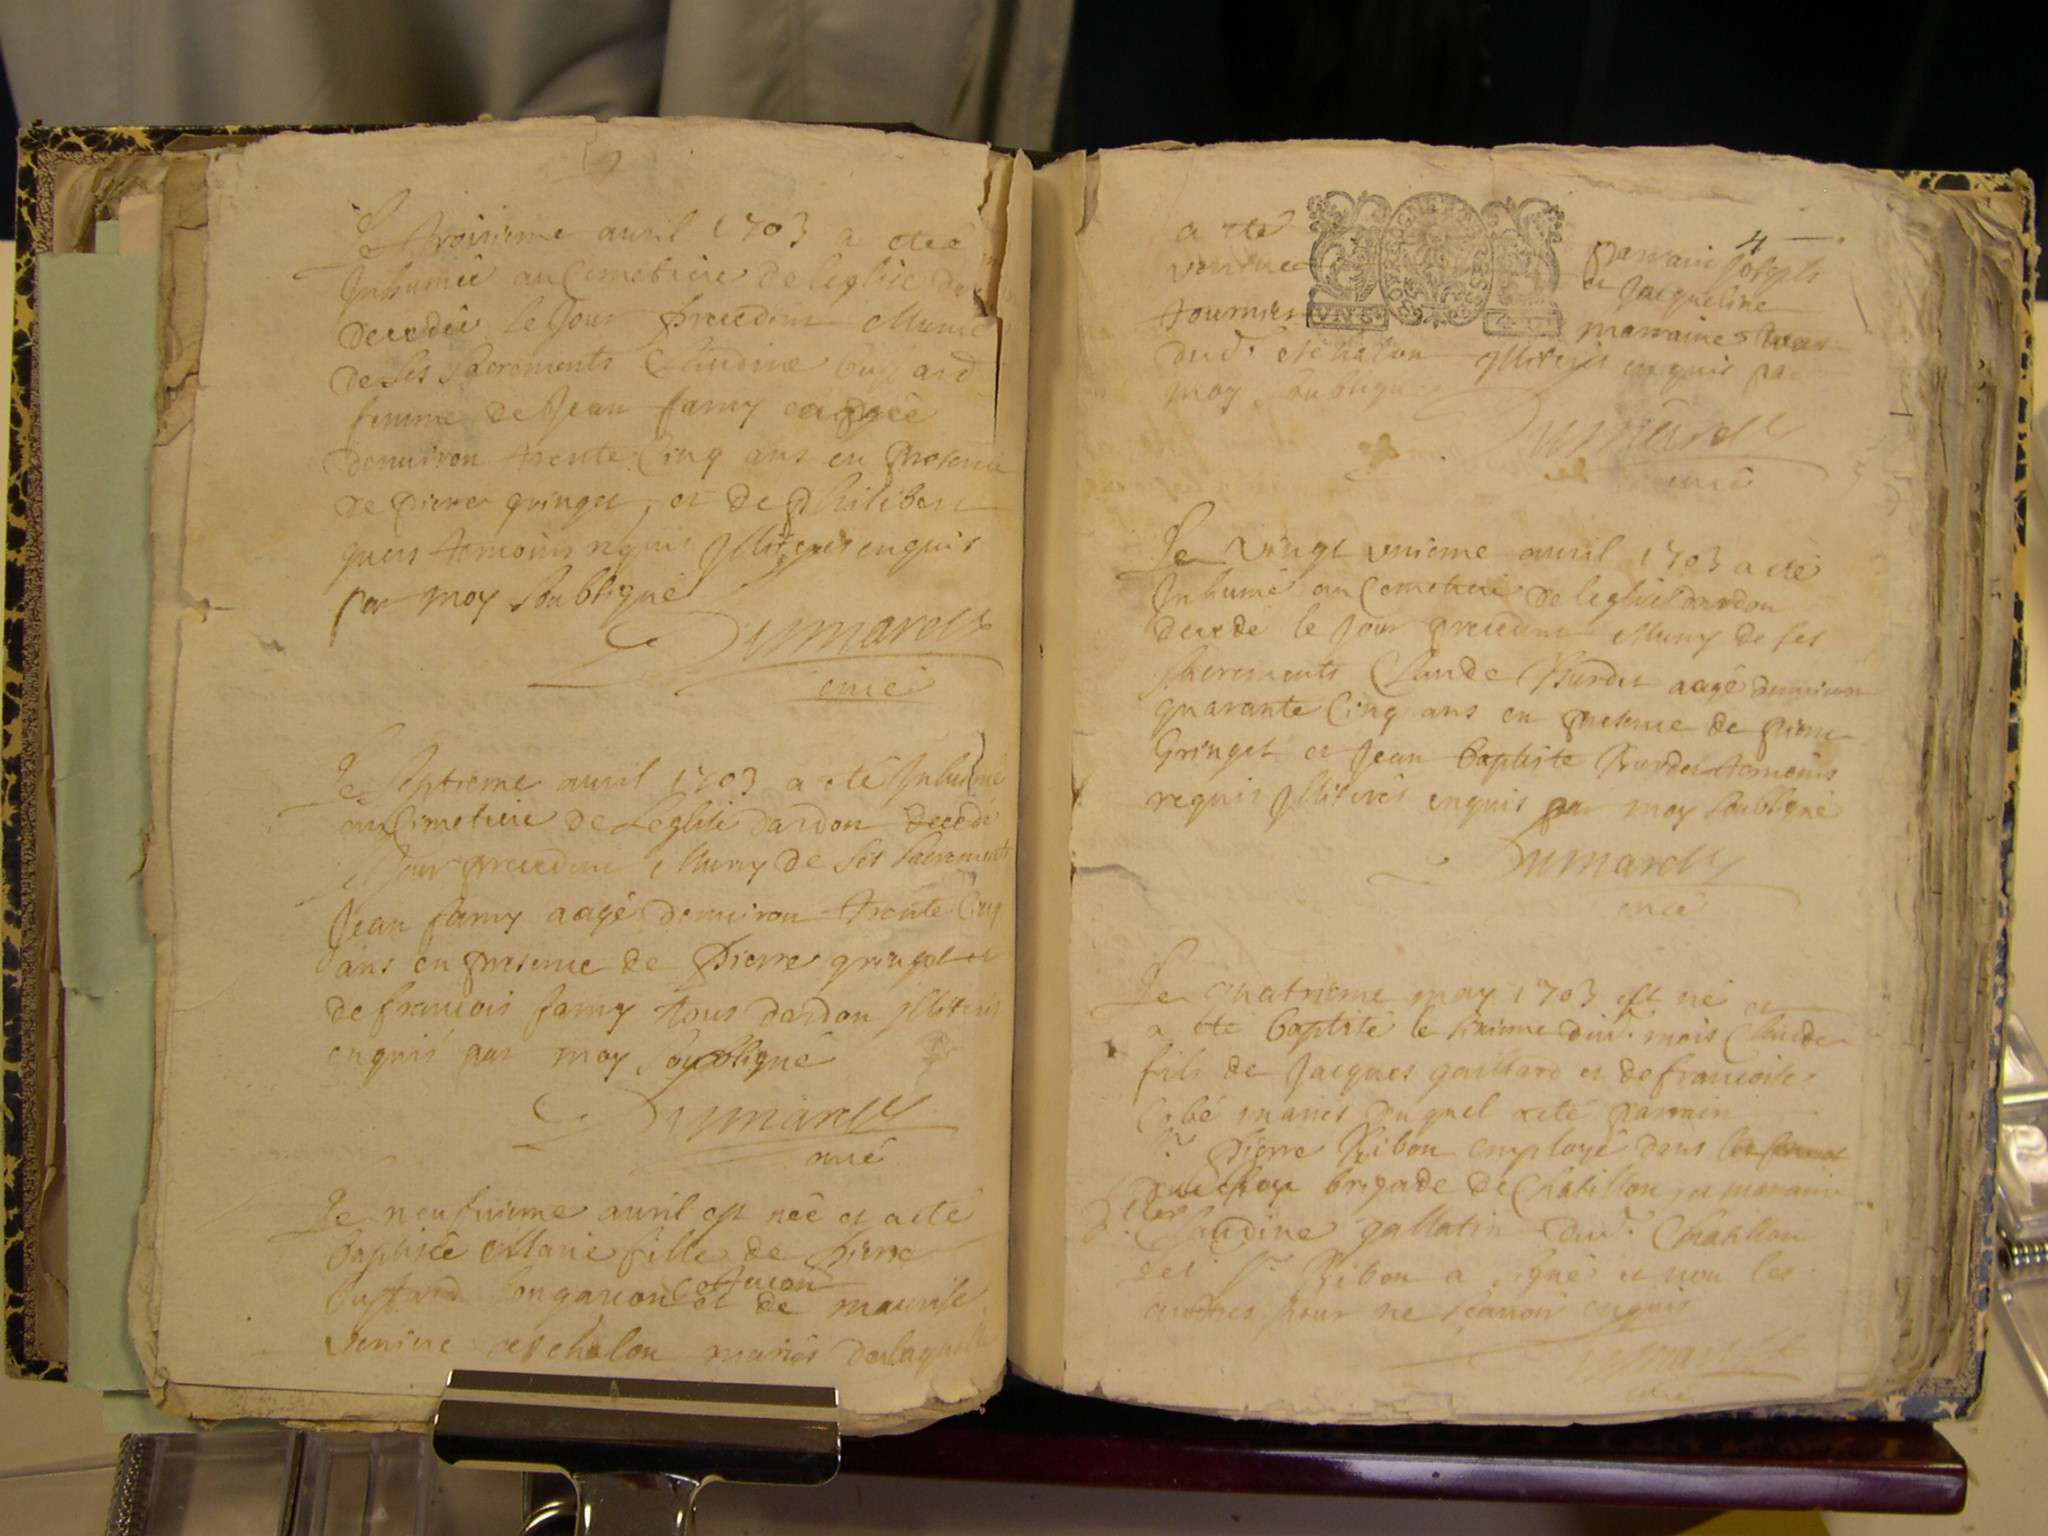 Le troisieme auril 1703 a etee
Inhumée au Cemetiere de leglise
decedée le Jour precedent Munie
de ses sacrements Claudine buffard
femme de Jean famy aagée
denuiron trente Cinq ans en presence
de pierre gringet, et de philibert
temoins requis Illiterés enquis
par moy soubsigné
Dumarest
curé
Le septieme auril 1703 a eté Inhumé
au Cimetiere de Leglise dardon decedé
le Jour precedent Muny de ses sacrements
Jean famy aagé denuiron trente Cinq
ans en presence de Pierre gringet et
de francois famy tous dardon Illiterés
enquis par moy soubsigné
Dumarest
curé
Le neufuieme auril est née et a eté
baptisée Marie fille de Pierre
buffard et de
mariés de laquelle
a eté parrain Joseph 4
et Jacqueline
tournier VNS. marraine
dud. Illiterés enquis par
moy soubsigné
Dumarest
curé
Le vingt vnieme auril 1703 a eté
Inhumé au Cemetiere de leglise dardon
decedé le Jour precedent Muny de ses
sacrements Claude Burdet aagé denuiron
quarante Cinq ans en presence de pierre
Gringet et Jean baptiste Burdet temoins
requis Illiterés enquis par moy soubsigné
Dumarest
curé
Le quatrieme may 1703 est né et
a eté baptisé le sixieme dud. mois Claude
fils de Jacques gaillard et de francoise
mariés duquel a eté parrain
sr. pierre Ribon employé dans les fermes
du Roy brigade de Chatillon, et maraine
Claudine gallatin dud. Chatillon
led. sr. Ribon a signé et non les
autres pour ne scauoir enquis
Dumarest
curé